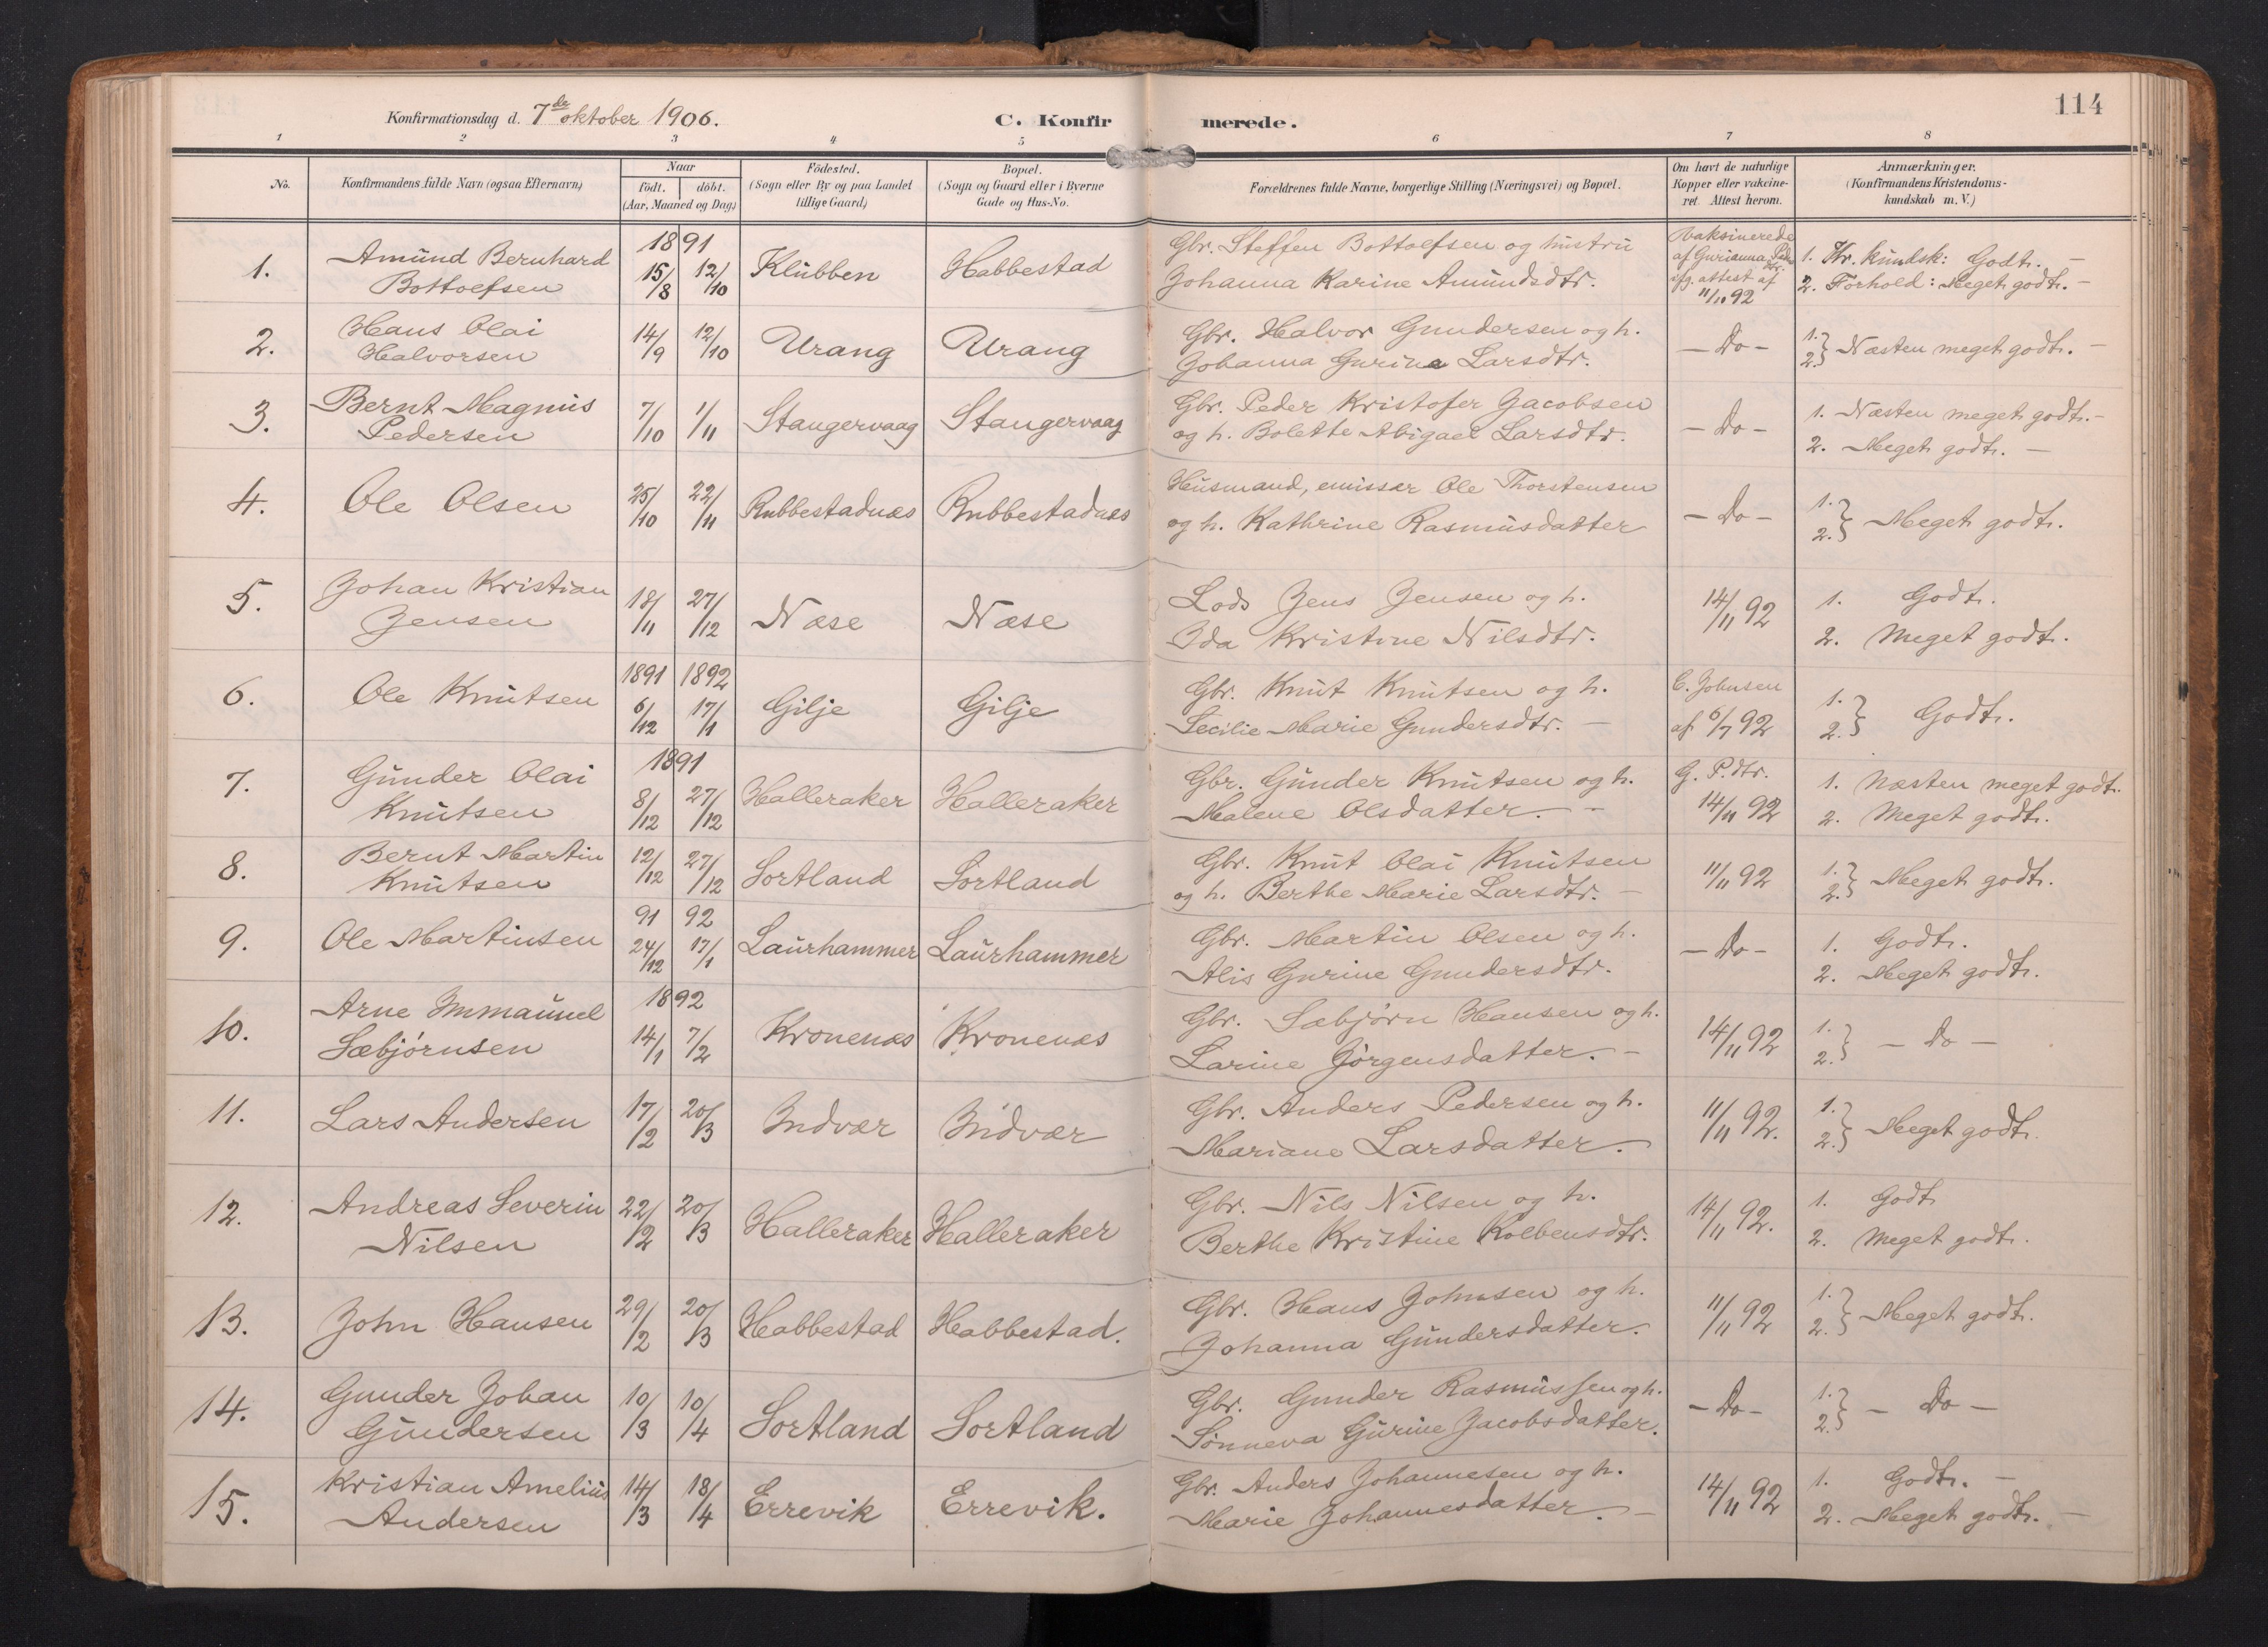 114
Konfirmationsdag d. 7de oktober 1906. C. Konfirmerede.
1 2 3 4 5 6 7 8
No. Konfirmandens fulde Navn (ogsaa Efternavn) Naar født. døbt. (Aar, Maaned og Dag) Fødested. (Sogn eller By og paa Landet tillige Gaard) Bopæl. (Sogn og Gaard eller i Byerne Gade og Hus-No. Forældrenes fulde Navne, borgerlige Stilling (Næringsvei) og Bopæl. Om havt de naturlige Kopper eller vakcineret. Attest herom. Anmærkninger. (Konfirmandens Kristendomskundskab m. V.)
1891
1. Amund Bernhard Bottolfsen 15/8 12/10 Klubben Habbestad Gbr. Steffen Bottolfsen og hustru Johanna Karine Amundsdtr. Vaksinerede af Gurianna Pedsdtr. ifg. attest af 11/11 92 1. Kr. kundsk: Godt. – 2. Forhold: Meget godt. –
2. Hans Olai Halvorsen 14/9 12/10 Urang Urang Gbr. Halvor Gundersen og h. Johanna Gurine Larsdtr. – Do – 1. 2.} Næsten meget godt. –
3. Bernt Magnus Pedersen 7/10 1/11 Stangervaag Stangervaag Gbr. Peder Kristofer Jacobsen og h. Bolette Abigael Larsdtr. – Do – 1. Næsten meget godt. – 2. Meget godt. –
4. Ole Olsen 25/10 22/11 Rubbestadnæs Rubbestadnæs Husmand, emissær Ole Thorstensen og h. Kathrine Rasmusdatter – Do – 1. 2.} Meget godt.
5. Johan Kristian Jensen 18/11 27/12 Næse Næse Lods Jens Jensen og h. Ida Kristine Nilsdtr. 14/11 92 1. Godt. 2. Meget godt.
1891 1892
6. Ole Knutsen 6/12 17/1 Gilje Gilje Gbr. Knut Knutsen og h. Secilie Marie Gundersdtr. – C. Johnsen af 6/7 92 1. 2.} Godt.
1891
7. Gunder Olai Knutsen 8/12 27/12 Halleraker Halleraker Gbr. Gunder Knutsen og h. Malene Olsdatter. – G. P.dtr. 14/11 92 1. Næsten meget godt. 2. Meget godt.
8. Bernt Martin Knutsen 12/12 27/12 Sortland Sortland Gbr. Knut Olai Knutsen og h. Berthe Marie Larsdtr. – 11/11 92 1. 2.} Meget godt.
91 92
9. Ole Martinsen 24/12 17/1 Laurhammer Laurhammer Gbr. Martin Olsen og h. Alis Gurine Gundersdtr. – Do – 1. Godt. 2. Meget godt.
1892
10. Arne Immanuel Sæbjørnsen 14/1 7/2 Kronenæs Kronenæs Gbr. Sæbjørn Hansen og h. Larine Jørgensdatter. – 14/11 92 1. 2.} – Do –
11. Lars Andersen 17/2 20/3 Indvær Indvær Gbr. Anders Pedersen og h. Mariane Larsdatter. 11/11 92. 1. 2.} Meget godt.
12. Andreas Severin Nilsen 22/2 20/3 Halleraker Halleraker Gbr. Nils Nilsen og h. Berthe Kristine Kolbensdtr. 14/11 92. 1. Godt 2. Meget godt.
13. John Hansen 29/2 20/3 Habbestad Habbestad. Gbr. Hans Johnsen og h. Johanna Gundersdatter. 11/11 92 1. 2.} Meget godt.
14. Gunder Johan Gundersen 10/3 10/4 Sortland Sortland Gbr. Gunder Rasmussen og h. Sønneva Gurine Jacobsdatter. – Do – 1. 2.} – Do –
15. Kristian Amelius Andersen 14/3 18/4 Errevik Errevik. Gbr. Anders Johannesen og h. Marie Johannesdatter. – 14/11 92 1. Godt. – 2. Meget godt. –